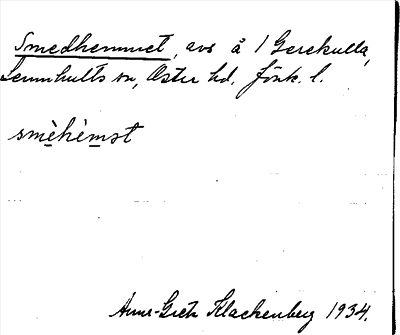 Smedhemmet, avs å 1 Gerekulla,
Lannhults sn, Östra hd. Jönk. l.
smèhèmst
Anna-Greta Klackenberg 1934.